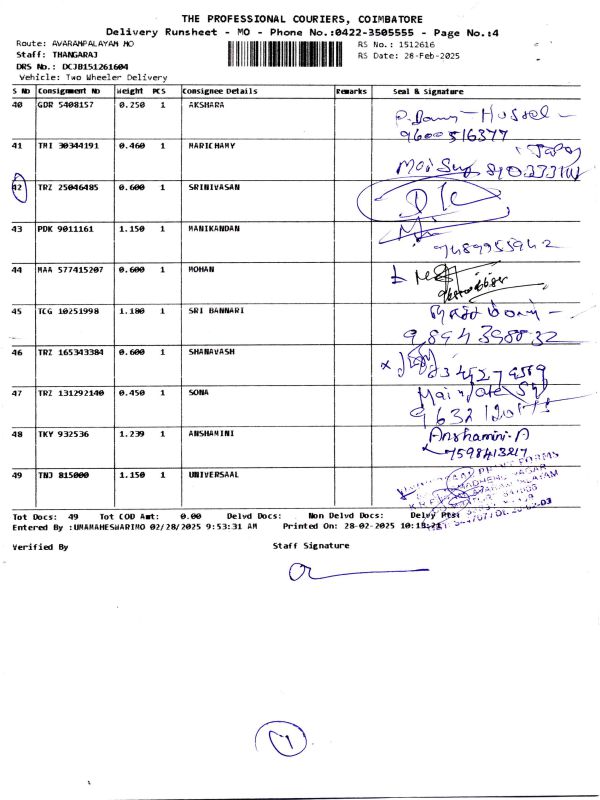 THE PROFESSIONAL COURIERS, COIMBATORE
Delivery Runsheet - MO - Phone No.:0422-3505555 - Page No.:4
Route: AVARAMPALAYAM MO
RS No.: 1512616
Staff: THANGARAJ
RS Date: 28-Feb-2025
DRS No.: DCJB151261604
Vehicle: Two Wheeler Delivery
S No Consignment No Weight PCS Consignee Details Remarks Seal & Signature
40 GDR 5408157 0.250 1 AKSHARA
9600516377
41 TMI 30344191 0.460 1 MARICHAMY
42 TRZ 25046485 0.600 1 SRINIVASAN
43 PDK 9011161 1.150 1 MANIKANDAN
9489955942
44 MAA 577415207 0.600 1 MOHAN
45 TCG 10251998 1.180 1 SRI BANNARI
9894398832
46 TRZ 165343384 0.600 1 SHANAVASH
47 TRZ 131292140 0.450 1 SONA
48 TKY 932536 1.239 1 ANSHAMINI Anshamini.A
7598413217
49 TNJ 815000 1.150 1 UNIVERSAAL
Tot Docs: 49 Tot COD Amt: 0.00 Delvd Docs: Non Delvd Docs: Delvy Pts:
Entered By :UMAMAHESHARIMO 02/28/2025 9:53:31 AM Printed On: 28-02-2025 10:18:21
Verified By Staff Signature